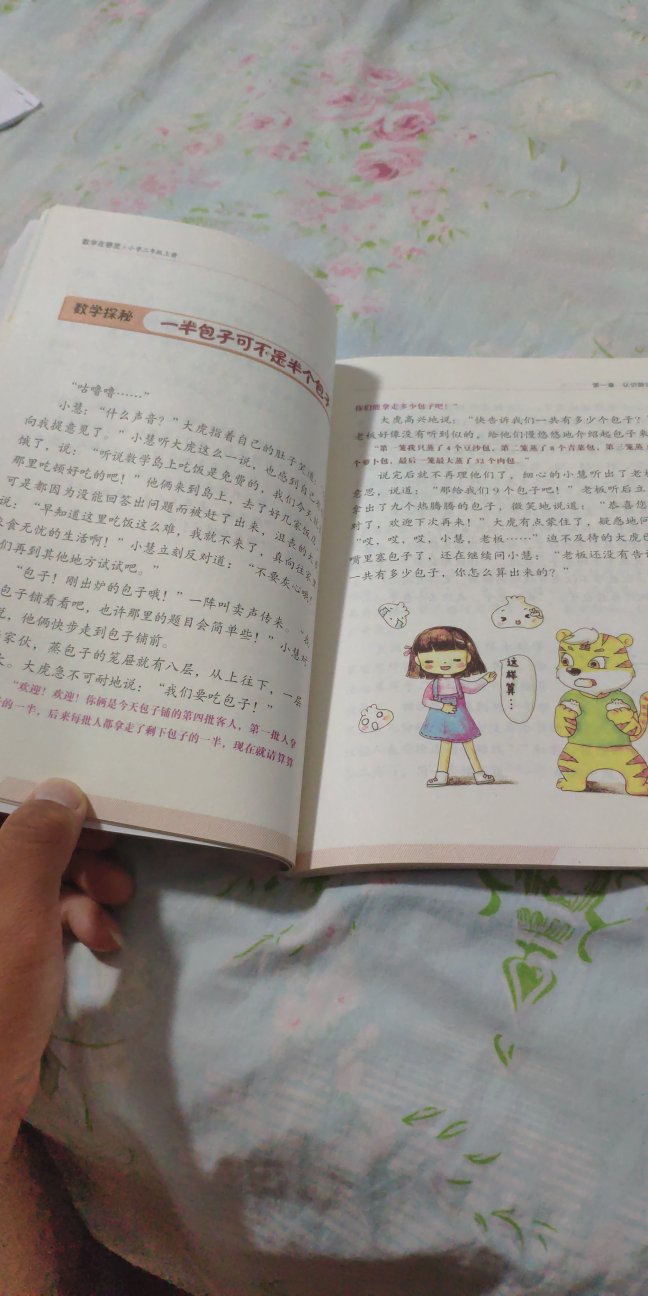 数学在哪里·小学二年级上册
数学探秘
一半包子可不是半个包子
“咕噜噜……”
小慧：“什么声音？”大虎指着自己的肚子
向我提意见了。”小慧听大虎这么一说，也感到自己
饿了，说：“听说数学岛上吃饭是免费的，我们今天
那里吃顿好吃的吧！”他俩来到岛上，去了好几家饭
可是都因为没能回答出问题而被赶了出来，沮丧的大
说：“早知道这里吃饭这么难，我就不来了，真向往
食无忧的生活啊！”小慧立刻反对道：“不要灰心
们再到其他地方试试吧。”
“包子！刚出炉的包子哦！”一阵叫卖声传来。
包子铺看看吧，也许那里的题目会简单些！”小慧
，他俩快步走到包子铺前。
家伙，蒸包子的笼屉就有八层，从上往下，一层
。大虎急不可耐地说：“我们要吃包子！”
“欢迎！欢迎！你俩是今天包子铺的第四批客人，第一批人拿
的一半，后来每批人都拿走了剩下包子的一半，现在就请算算
第一章 认识
你们能拿走多少包子吧！”
大虎高兴地说：“快告诉我们一共有多少个包子？”
老板好像没有听到似的，给他们慢悠悠地介绍起包子来
“第一笼我只蒸了4个豆沙包，第二笼蒸了8个青菜包，第三笼蒸
个萝卜包，最后一笼最大蒸了32个肉包。”
说完后就不再理他们了，细心的小慧听出了老
意思，说道：“那给我们9个包子吧！”老板听后立
拿出了九个热腾腾的包子，微笑地说道：“恭喜您
对了，欢迎下次再来！”大虎有点蒙住了，疑惑地问
“哎，哎，哎，小慧，老板……”迫不及待的大虎
嘴里塞包子了，还在继续问小慧：“老板还没有告
一共有多少包子，你怎么算出来的？”
这样算…